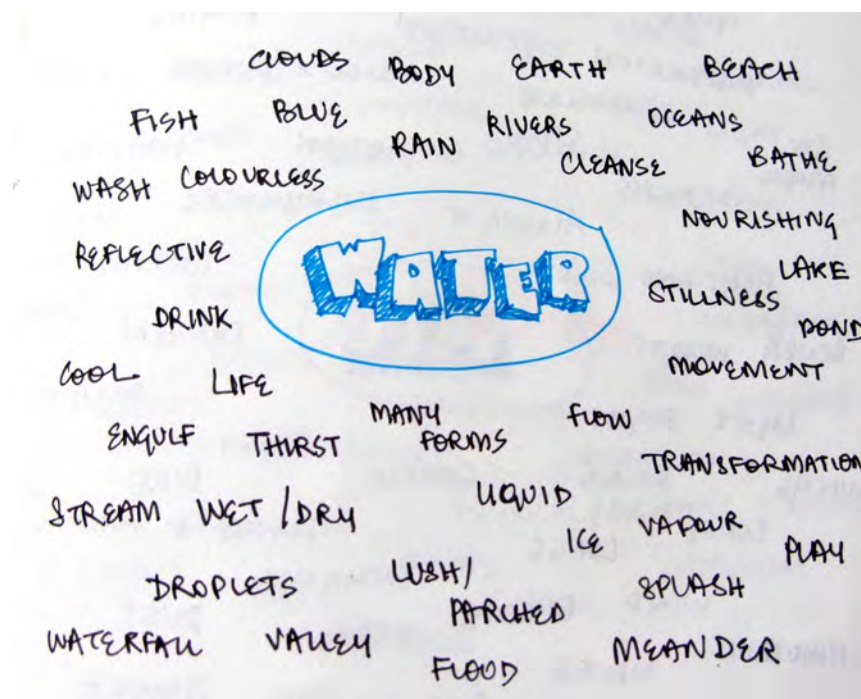 CLOUDS BODY EARTH BEACH
FISH BLUE RAIN RIVERS OCEANS
WASH COLOURLESS CLEANSE BATHE
NOURISHING
REFLECTIVE WATER LAKE
STILLNESS
DRINK POND
COOL LIFE MOVEMENT
MANY FORMS FLOW
ENGULF THIRST
TRANSFORMATION
STREAM WET/DRY LIQUID
ICE VAPOUR PLAY
DROPLETS LUSH/ SPLASH
PARCHED
WATERFALL VALLEY MEANDER
FLOOD